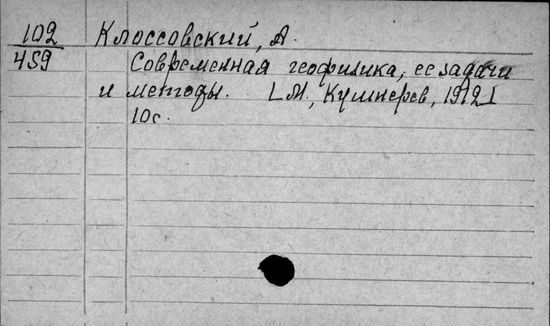 102 Клоссовский, А.
459 Современная геофизика, ее задачи
и методы. [М., Кушнерев, 1912]
10с.